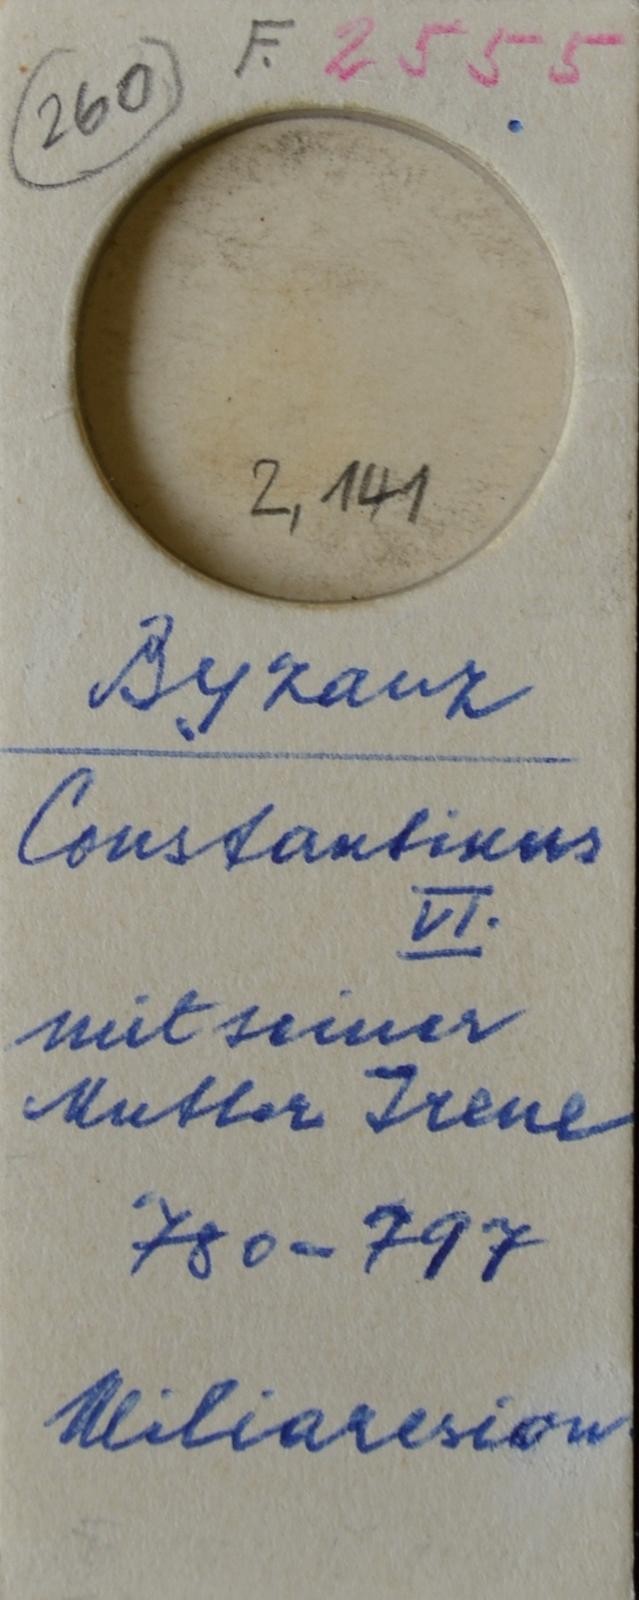 260 F. 2555
2,141
Byzanz
Constantinus
VI.
mit seiner
Mutter Irene
780-797
Miliaresion